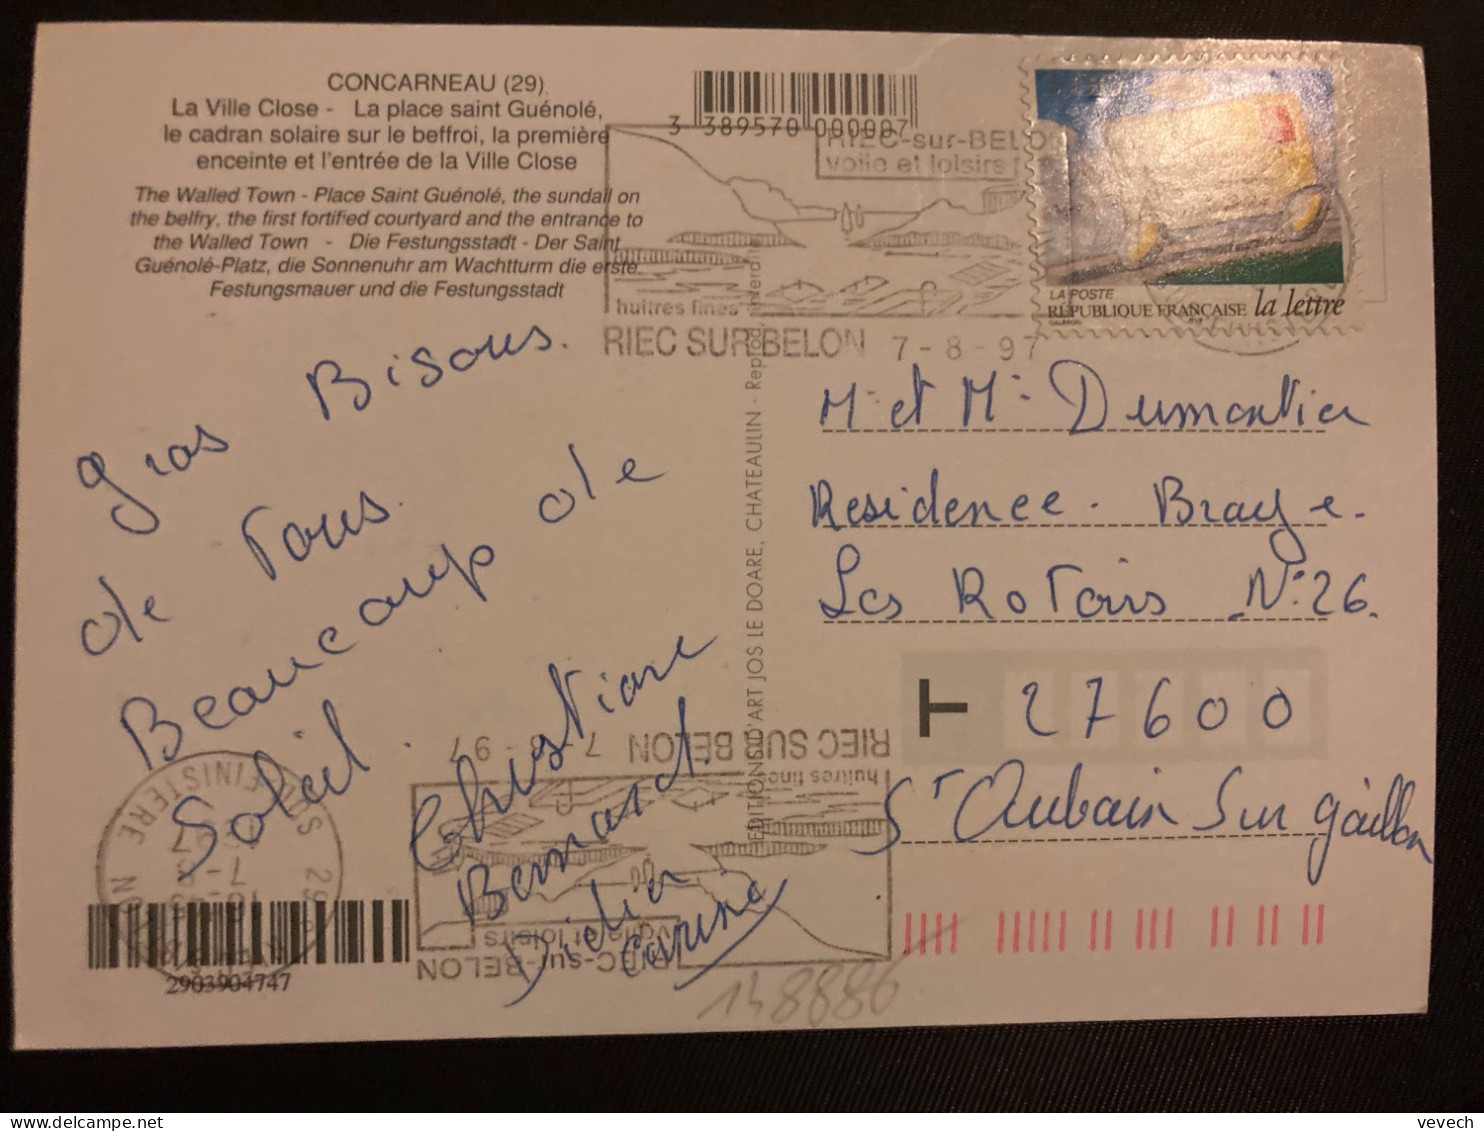 CONCARNEAU (29)
La Ville Close - La place saint Guénolé,
le cadran solaire sur le beffroi, la première
enceinte et l'entrée de la Ville Close
The Walled Town - Place Saint Guénolé, the sundail on
the belfry, the first fortified courtyard and the entrance to
the Walled Town - Die Festungsstadt - Der Saint
Guénolé-Platz, die Sonnenuhr am Wachtturm die erste
Festungsmauer und die Festungsstadt
3 389570 000007
RIEC-sur-BELON
voile et loisirs
huîtres fines
RIEC SUR BELON 7-8-97
LA POSTE
RÉPUBLIQUE FRANÇAISE la lettre
gros Bisous.
de Tous.
Beaucoup de
Soleil.
Christiane
Bernard.
Didier
Carine
EDITIONS D'ART JOS LE DOARE, CHATEAULIN - Reprod. interdite
M. et Mr Dumontier
Residence. Braye.
Les Rotoirs N°26.
T 27600
St Aubain Sur gaillon
RIEC SUR BELON 7-8-97
huîtres fines
voile et loisirs
RIEC-sur-BELON
FINISTERE
2903904747
148886
vevech